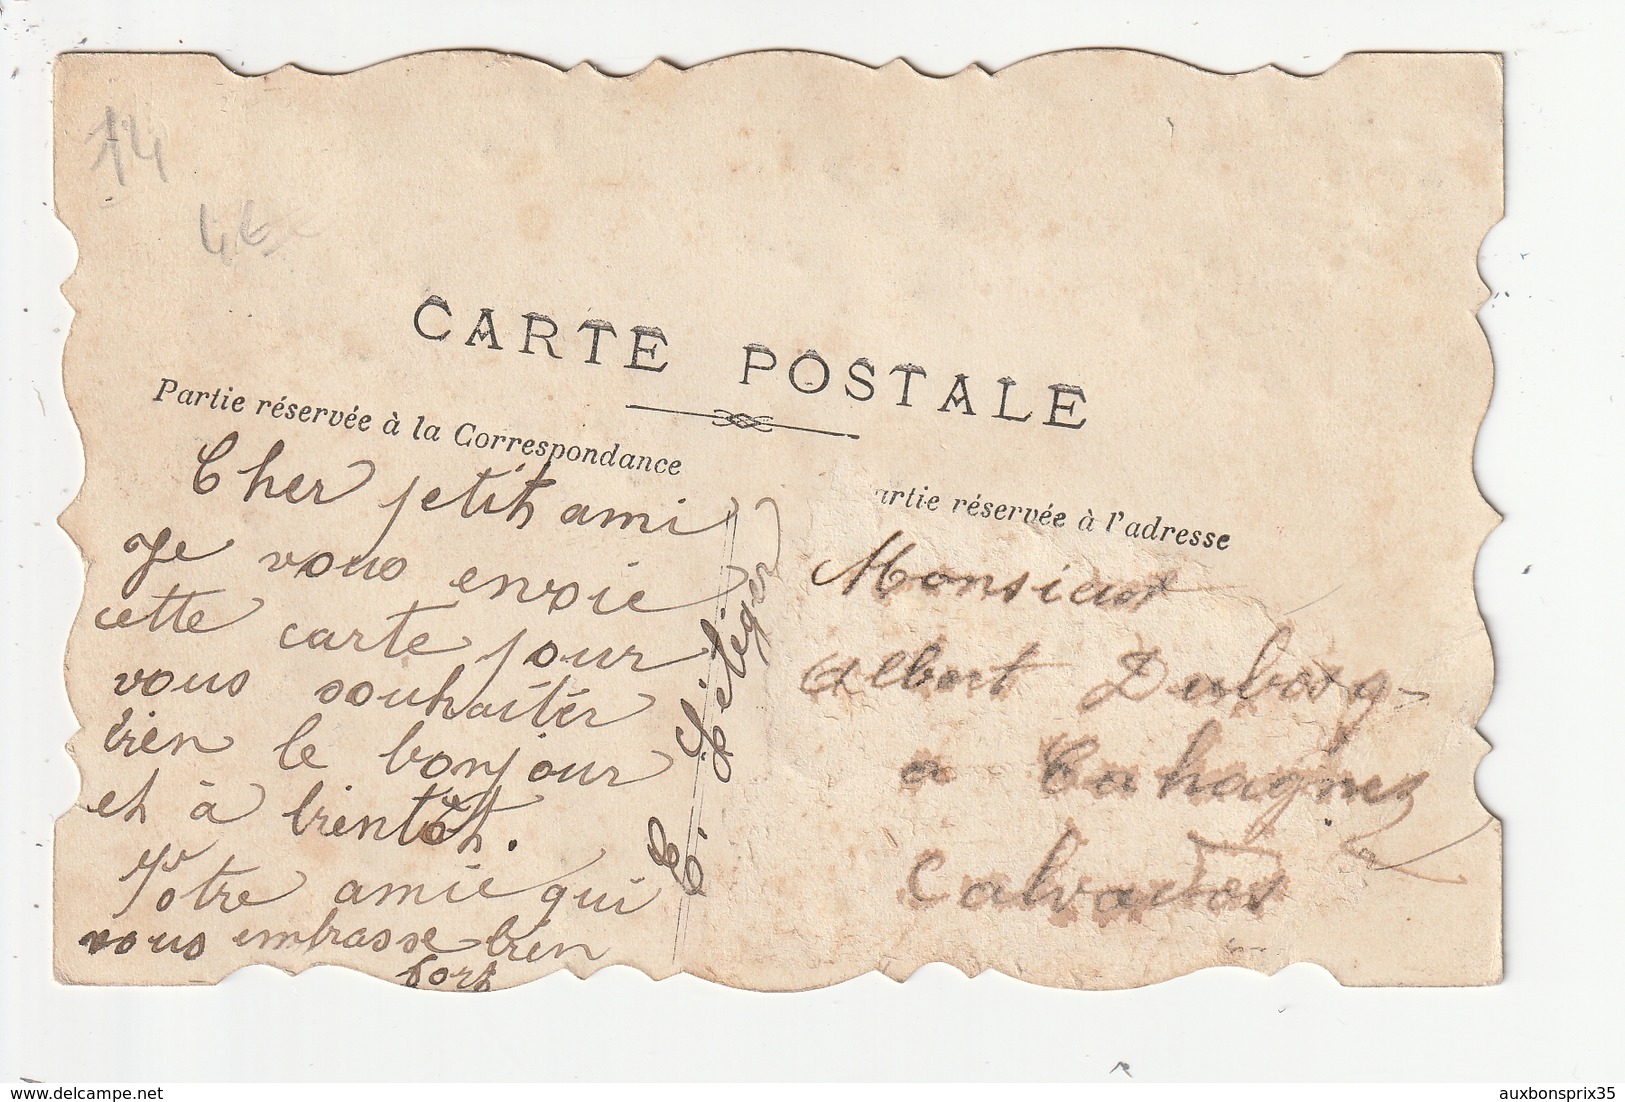 14
4€
CARTE POSTALE
Partie réservée à la Correspondance
artie réservée à l'adresse
Cher petit ami
Je vous envoie
cette carte pour
vous souhaiter
bien le bonjour
et à bientôt.
Votre amie qui
vous embrasse bien
fort
Letéger
Monsieur
Albert Dubosq
a Cahagnes
Calvados
auxbonsprix35